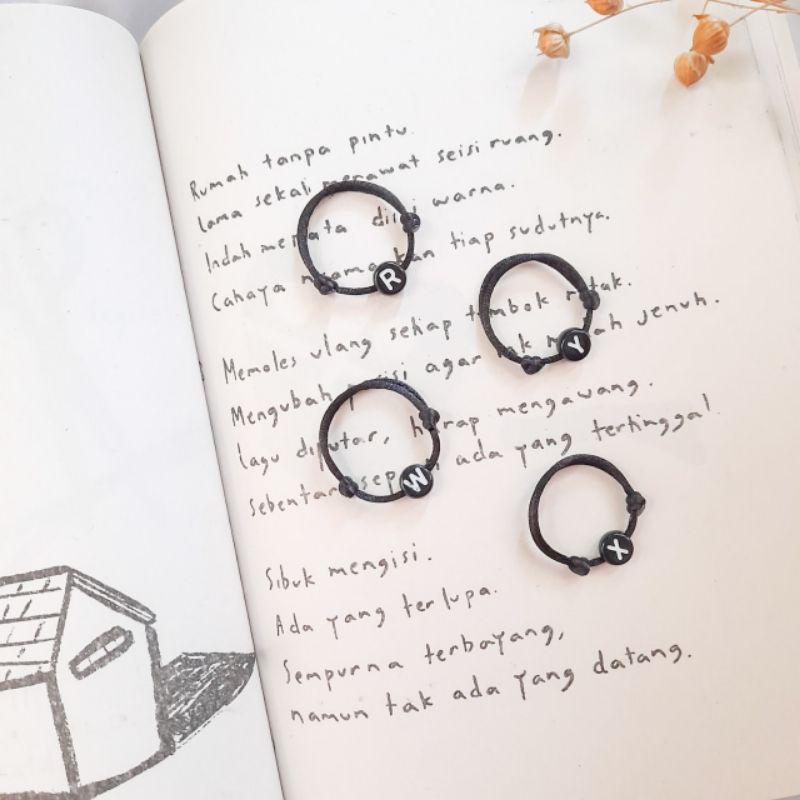 Rumah tanpa pintu.
lama sekali merawat seisi ruang.
Indah menata warna.
Cahaya tiap sudutnya.
R
Memoles ulang setiap tembok retak.
Y
Mengubah posisi agar tak mudah jenuh.
lagu diputar, harap mengawang.
W
Sebentar ada yang tertinggal.
X
Sibuk mengisi.
Ada yang terlupa.
Sempurna terbayang,
namun tak ada yang datang.